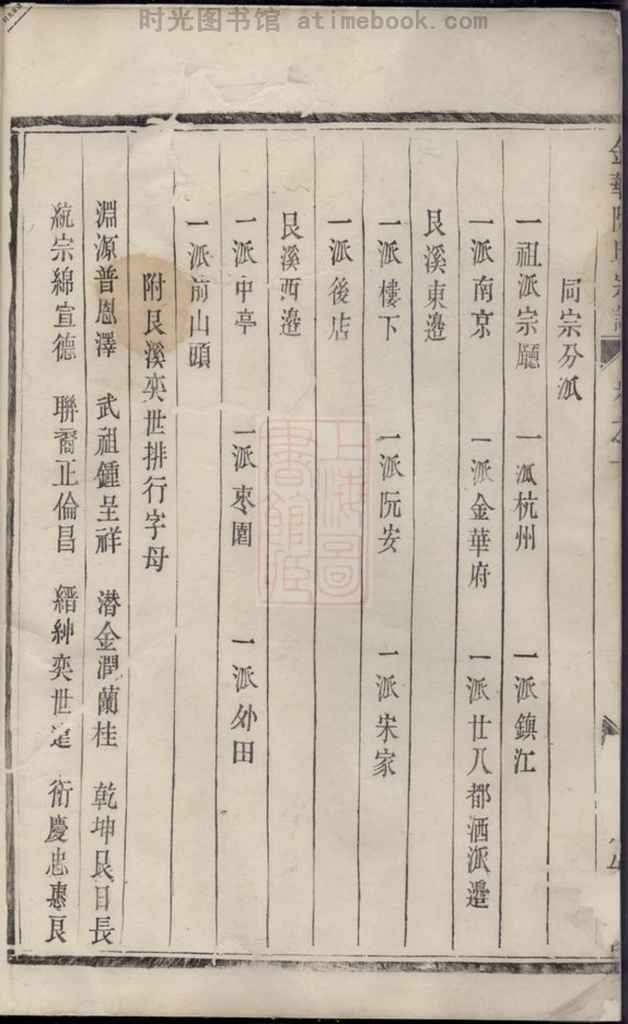 时光图书馆 atimebook.com
同宗分派
一祖派宗廳 一派杭州 一派鎮江
一派南京 一派金華府 一派廿八都洒派邉
艮溪東邉
一派樓下 一派阮安 一派宋家
一派後店
艮溪西邉
一派中亭 一派枣園 一派外田
一派前山頭
附艮溪奕世排行字母
淵源普恩澤 武祖鍾呈祥 潛金潤蘭桂 乾坤艮日長
統宗綿宣德 聯裔正倫昌 縉紳奕世定 衍慶忠惠良
上海圖書館藏